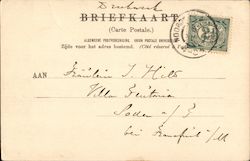 Drukwerk
BRIEFKAART.
(Carte Postale.)
ALGEMEENE POSTVEREENIGING. (UNION POSTALE UNIVERSELLE)
Zijde voor het adres bestemd. (Côté réservé à l'a
AAN Fräulein J. Hilts
Villa
Soden a/
bei Frankfurt a/M